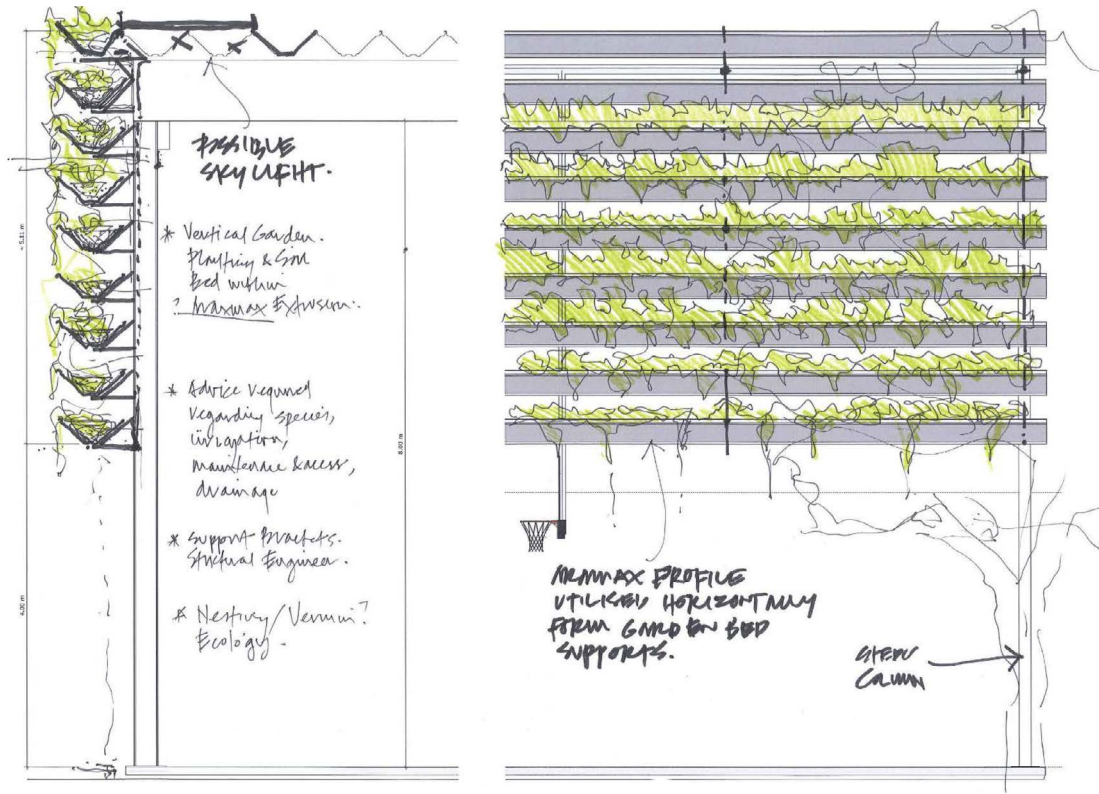 POSSIBLE
SKYLIGHT.
* Vertical Garden.
Planting & Soil
Bed within
? Maxmax Extrusion.
* Advice required
regarding species,
irrigation,
maintenance & access,
drainage
* Support Brackets.
Structural Engineer.
* Nesting/Vermin?
Ecology.
4.00 m
8.00 m
PROFILE
UTILISED HORIZONTALLY
FORM GARDEN BED
SUPPORTS.
STEEL
COLUMN